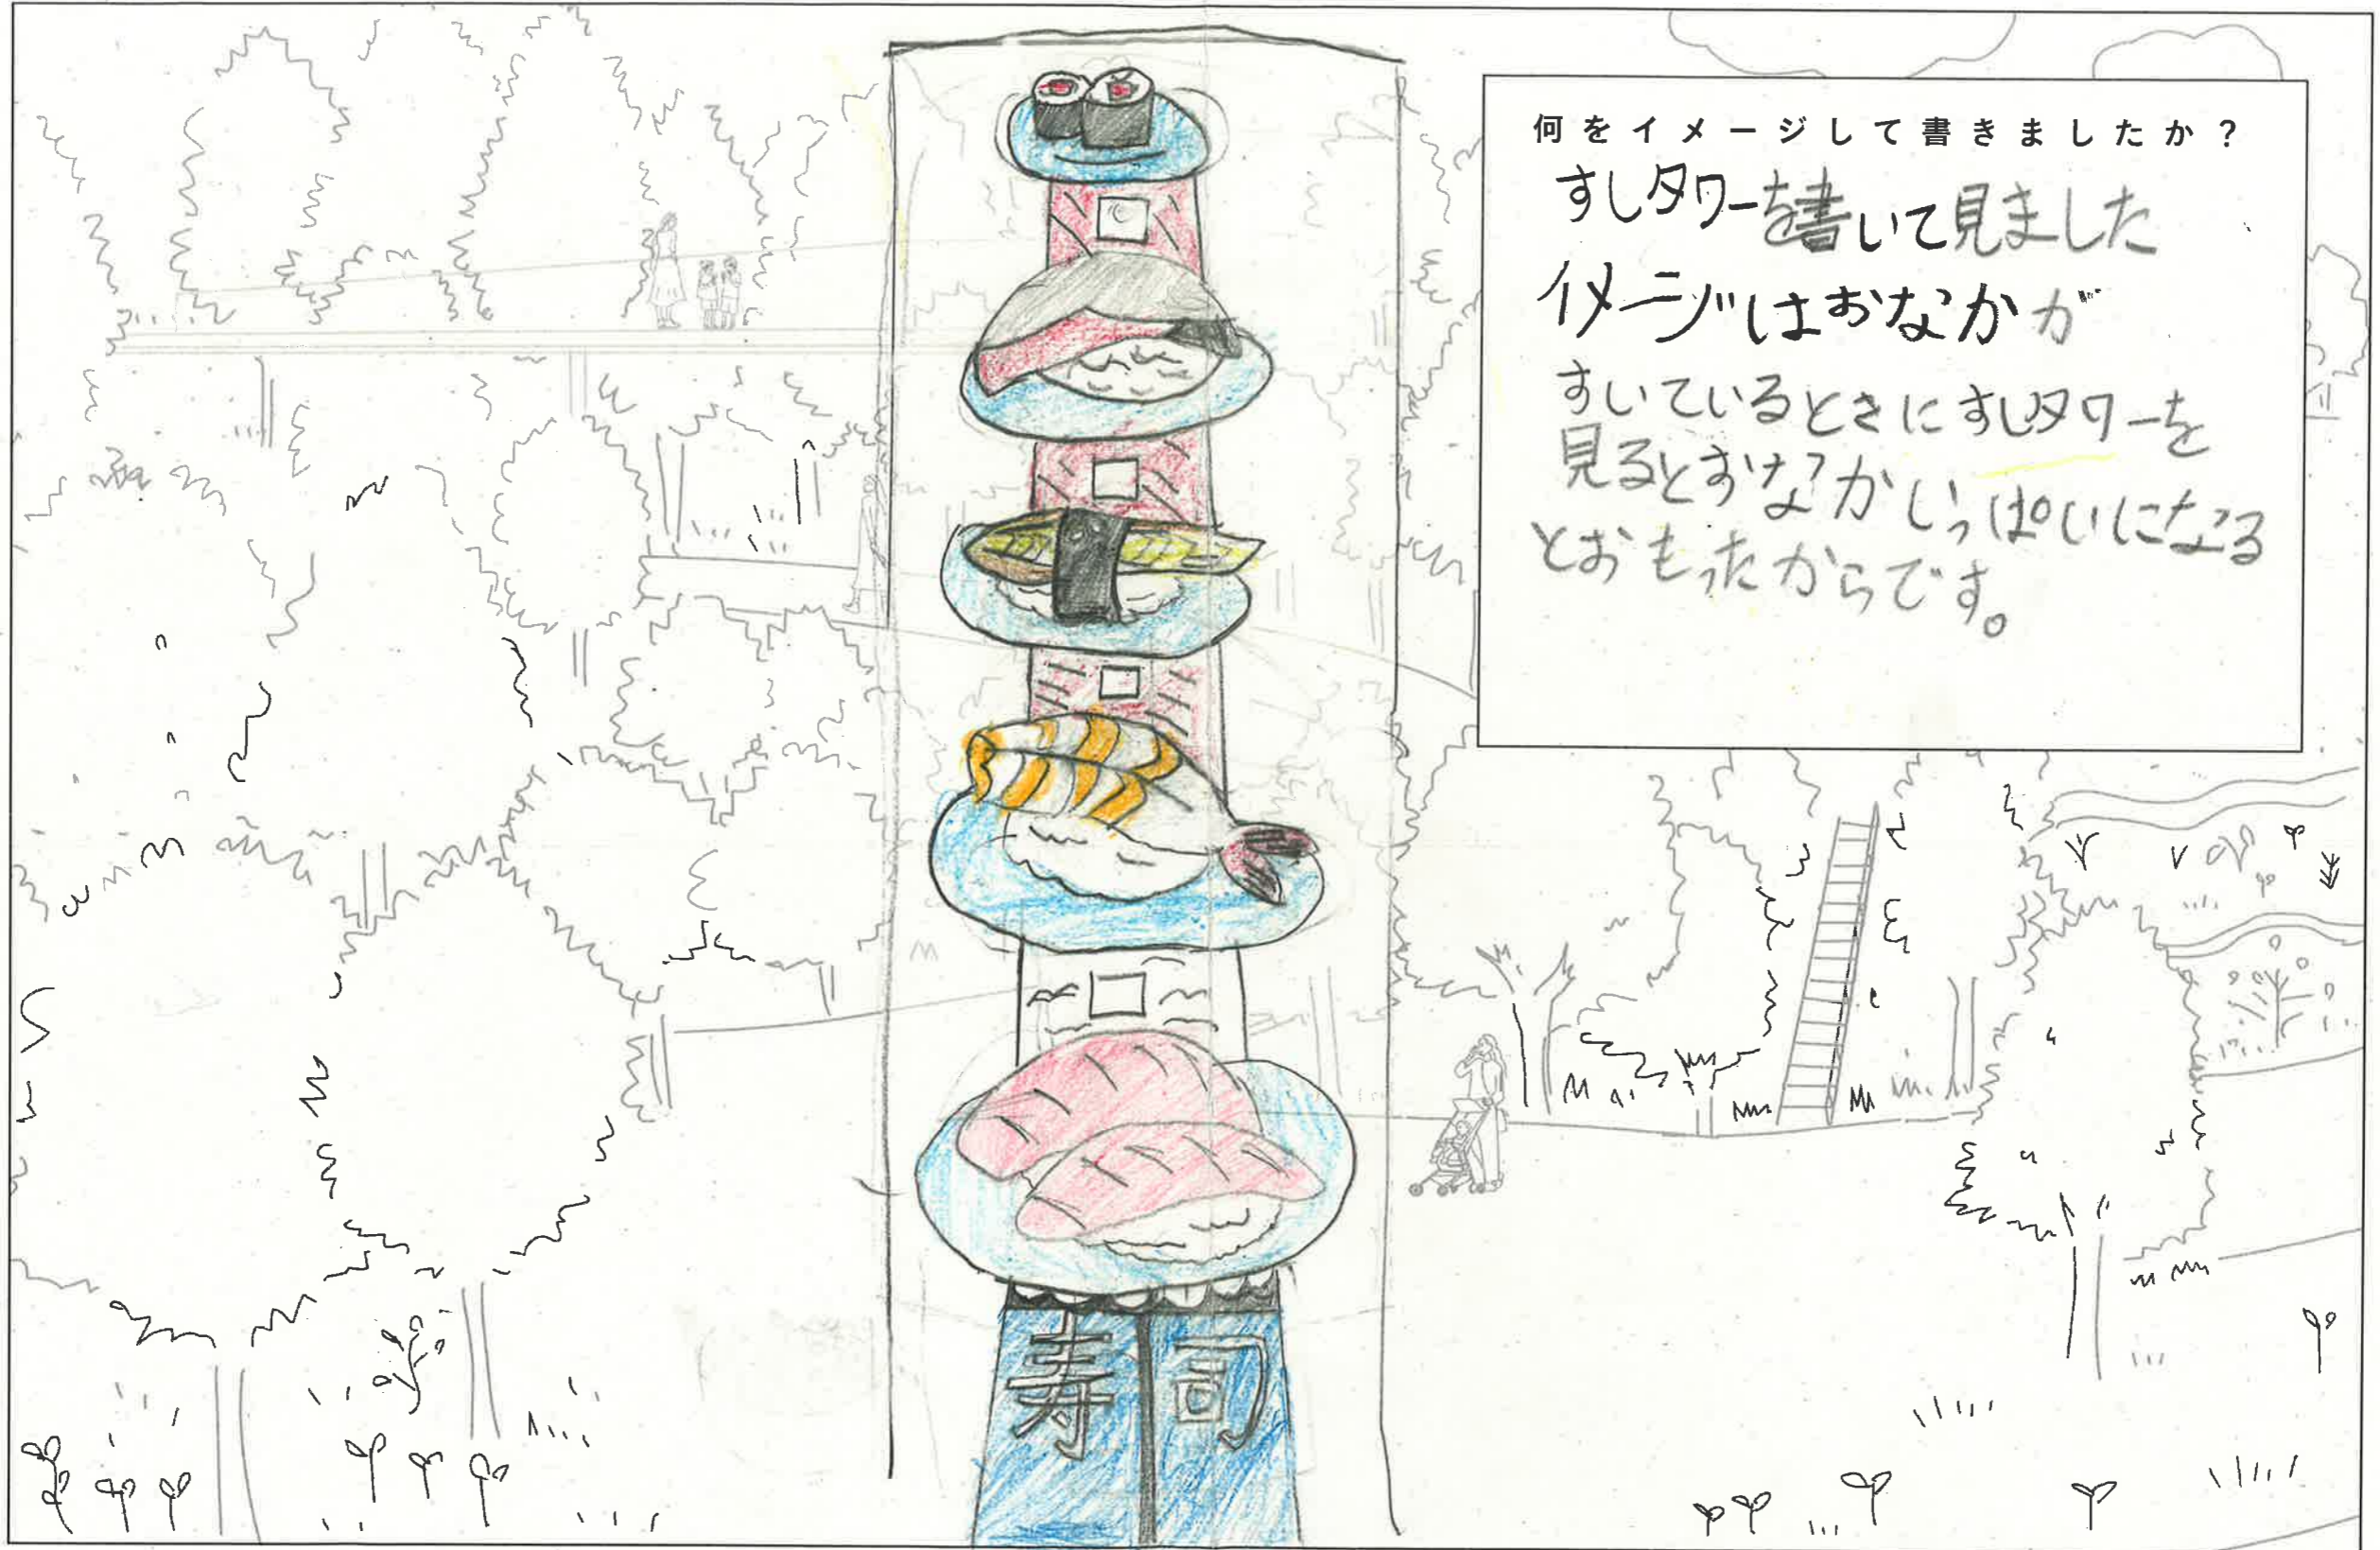 何をイメージして書きましたか？
すしタワーを書いて見ました
イメージはおなかが
すいているときにすしタワーを
見るとおなかいっぱいになる
とおもったからです。
寿司